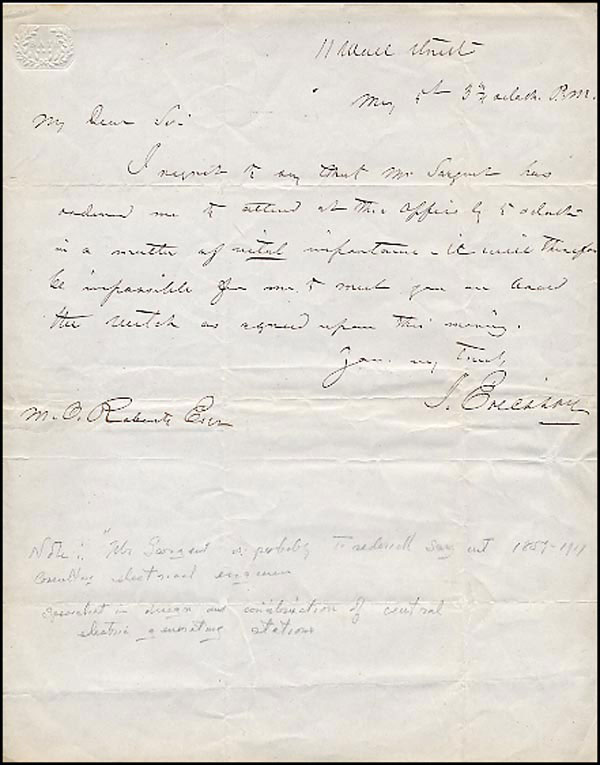 11 Wall Street
May 5th 3 3/4 oclock P.M.
My Dear Sir
I regret to say that Mr Sargent has
ordered me to attend at this office by 5 oclock
in a matter of vital importance - it will therefore
be impossible for me to meet you on board
the as agreed upon this morning.
Your my Truly
J. Ericsson
M. O. Roberts Esqr
Note: "Mr Sargent" is probably Frederick Sargent 1859-1919
Consulting electrical engineer
specialist in design and construction of central
electric generating stations